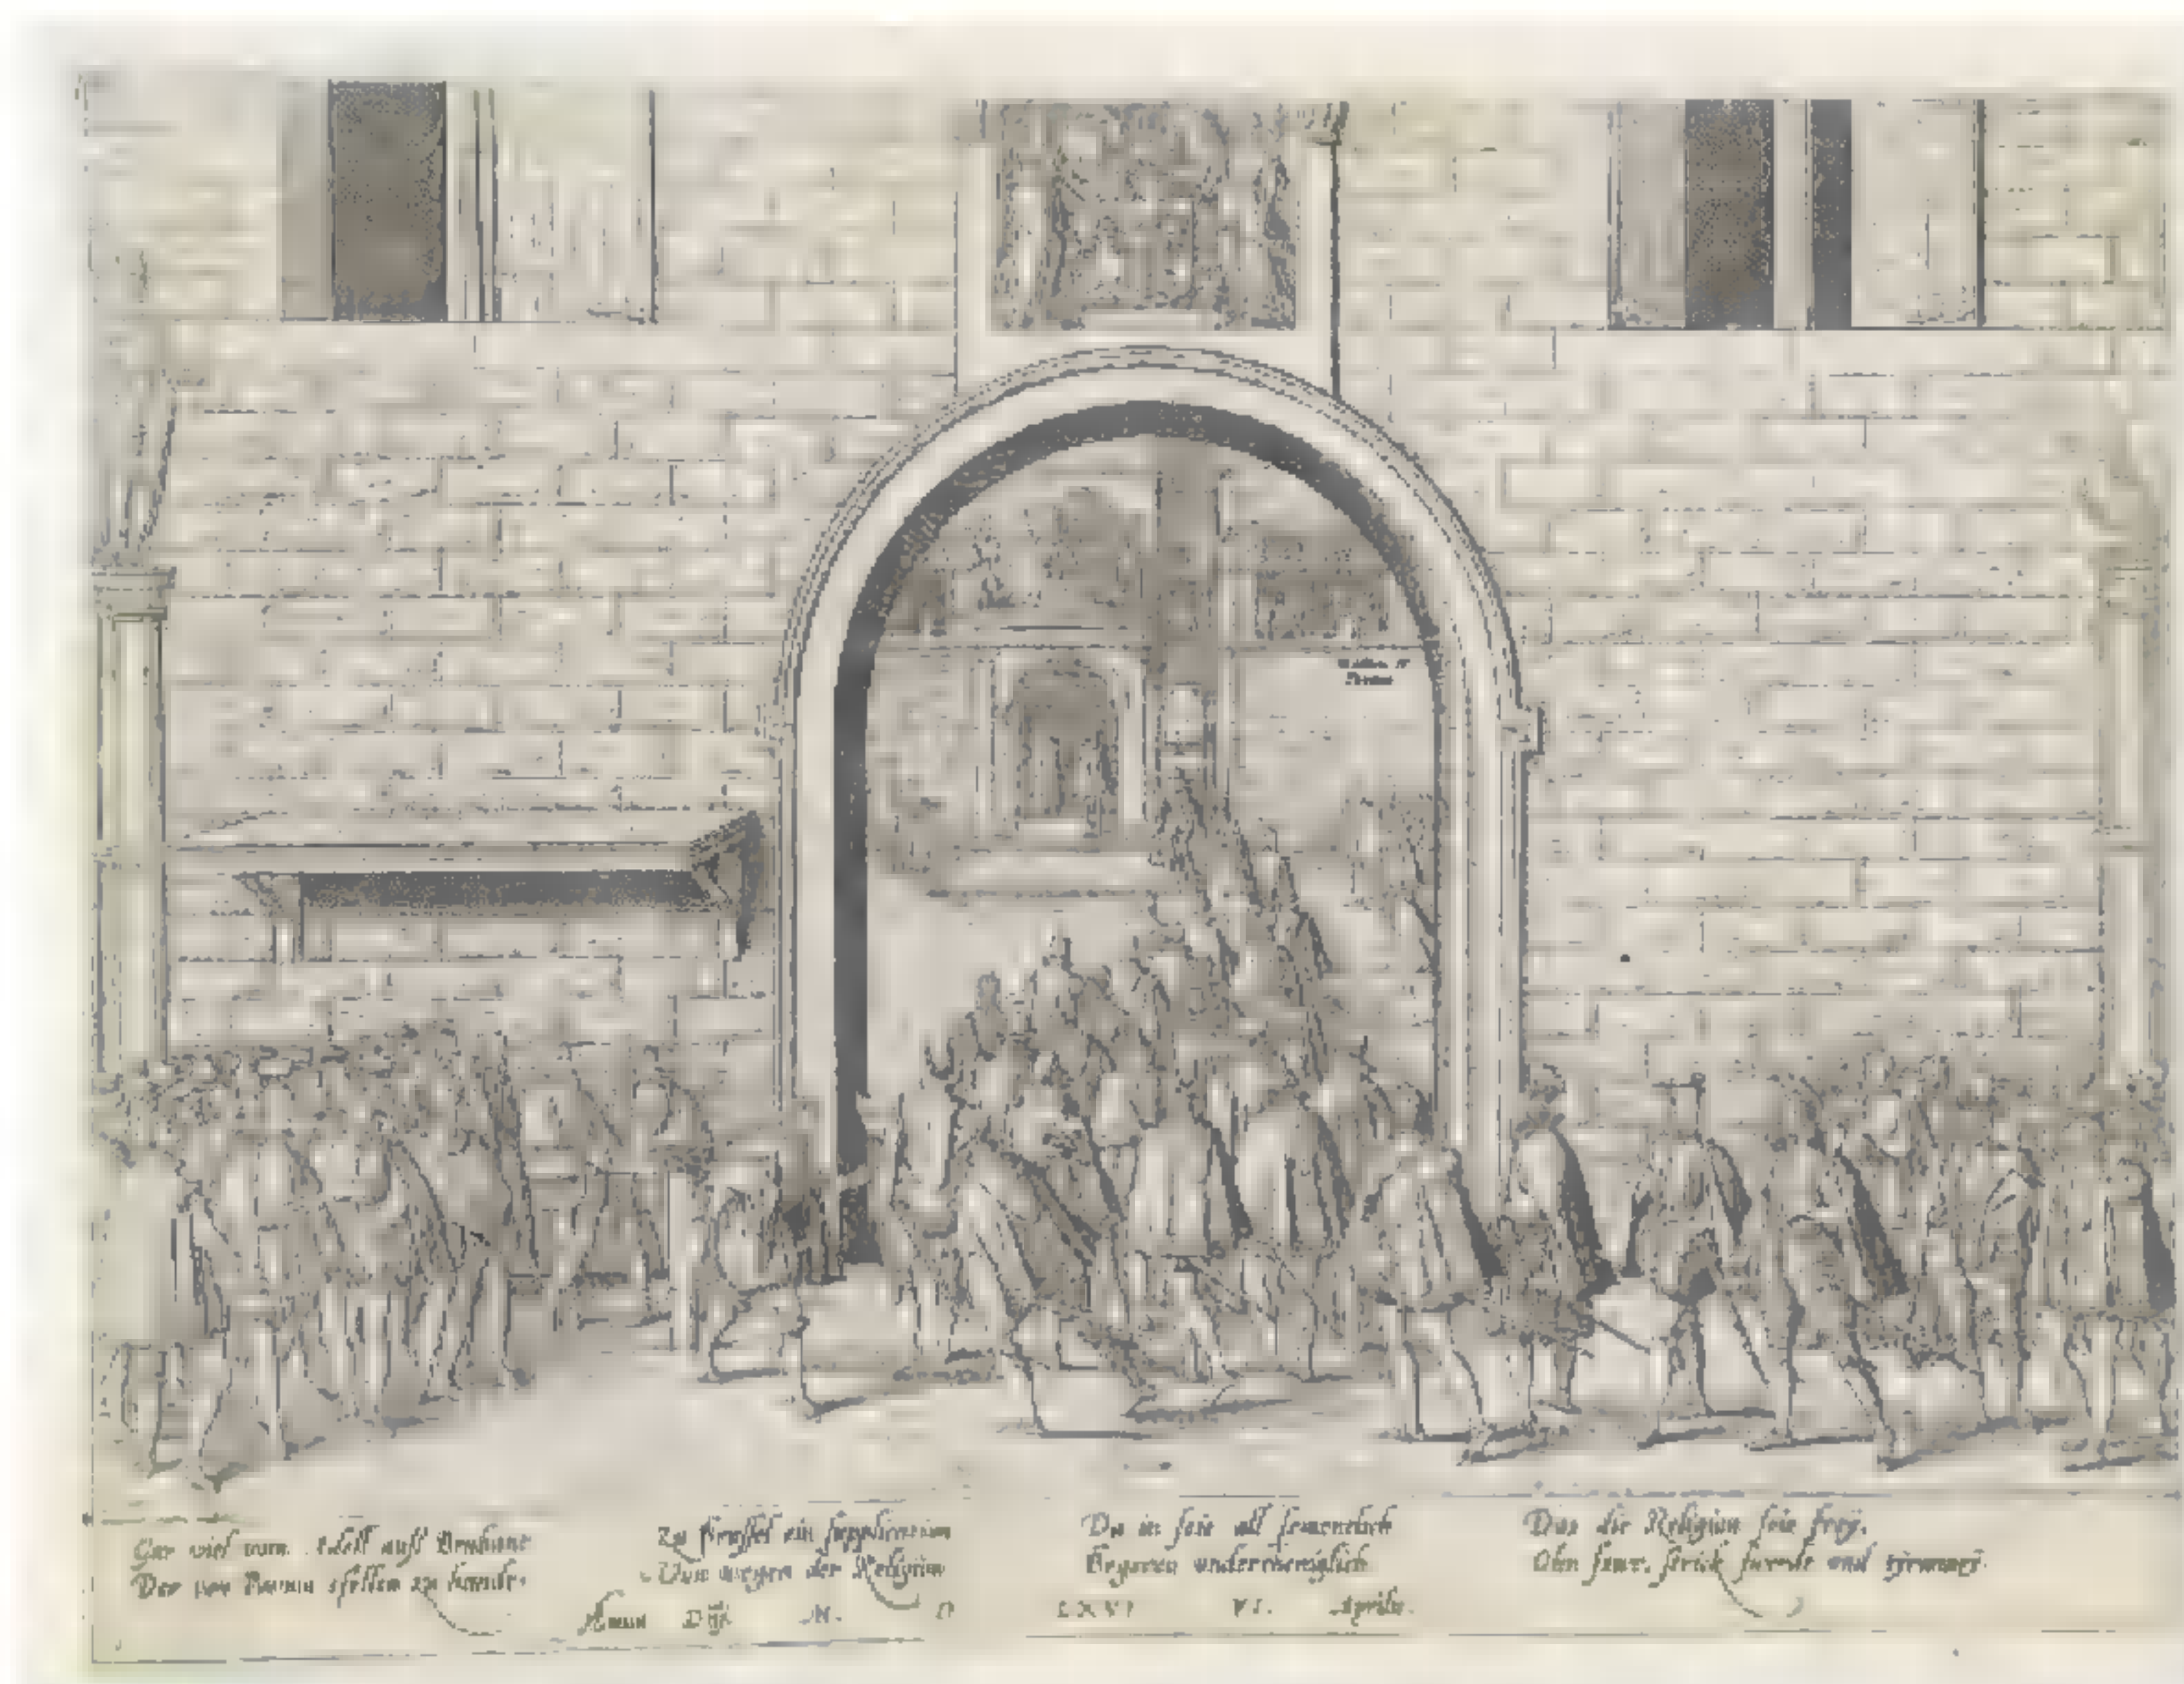 Gar viel vom Adell auß Brabant
Der von stellen zu handt.
Zu Brussel ein supplication
Von wegen der Religion
Da in seie all sementlich
Begeren undertheniglich
Das die Religion seie freÿ.
Ohn feur, strick, und tÿrannej.
Anno Dñi. M. D LXVI VI. Aprilis.